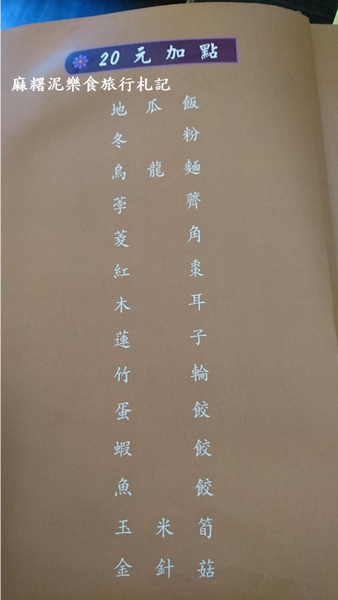 20元加點
麻糬泥樂食旅行札記
地瓜飯
冬粉
烏龍麵
荸薺
菱角
紅棗
木耳
蓮子
竹輪
蛋餃
蝦餃
魚餃
玉米筍
金針菇